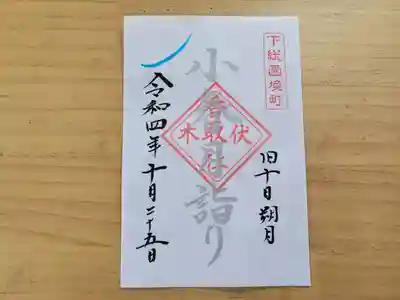 下総國境町
旧十日朔月
小春月詣り
香取社
伏木
令和四年十月二十五日